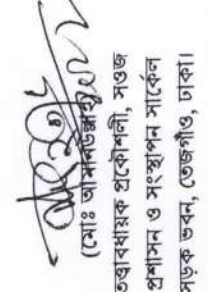 (মোঃ আমানউল্লাহ)
তত্ত্বাবধায়ক প্রকৌশলী, সওজ
প্রশাসন ও সংস্থাপন সার্কেল
সড়ক ভবন, তেজগাঁও, ঢাকা।